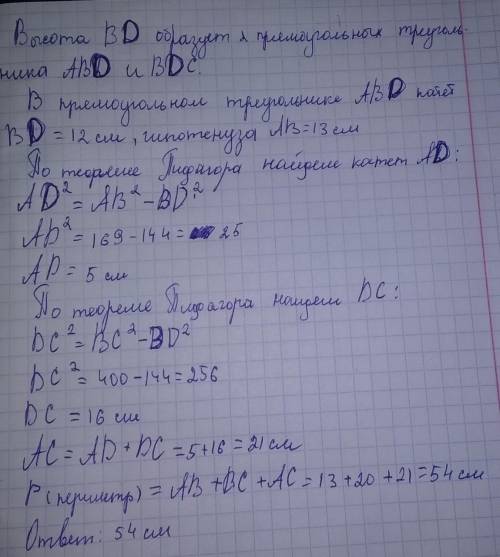 Высота BD образует 2 прямоугольных треуголь-
ника ABD и BDC.
В прямоугольном треугольнике ABD катет
BD = 12 см, гипотенуза AB = 13 см
По теореме Пифагора найдем катет AD:
AD² = AB² - BD²
AD² = 169 - 144 = 25
AD = 5 см
По теореме Пифагора найдем DC:
DC² = BC² - BD²
DC² = 400 - 144 = 256
DC = 16 см
AC = AD + DC = 5 + 16 = 21 см
P (периметр) = AB + BC + AC = 13 + 20 + 21 = 54 см
Ответ: 54 см